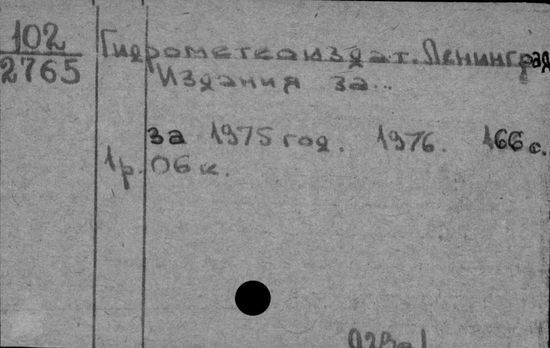 102
2765
Гидрометеоиздат. Ленинград
Издания за...
за 1975 год. 1976. 166 с.
1р. 06 к.